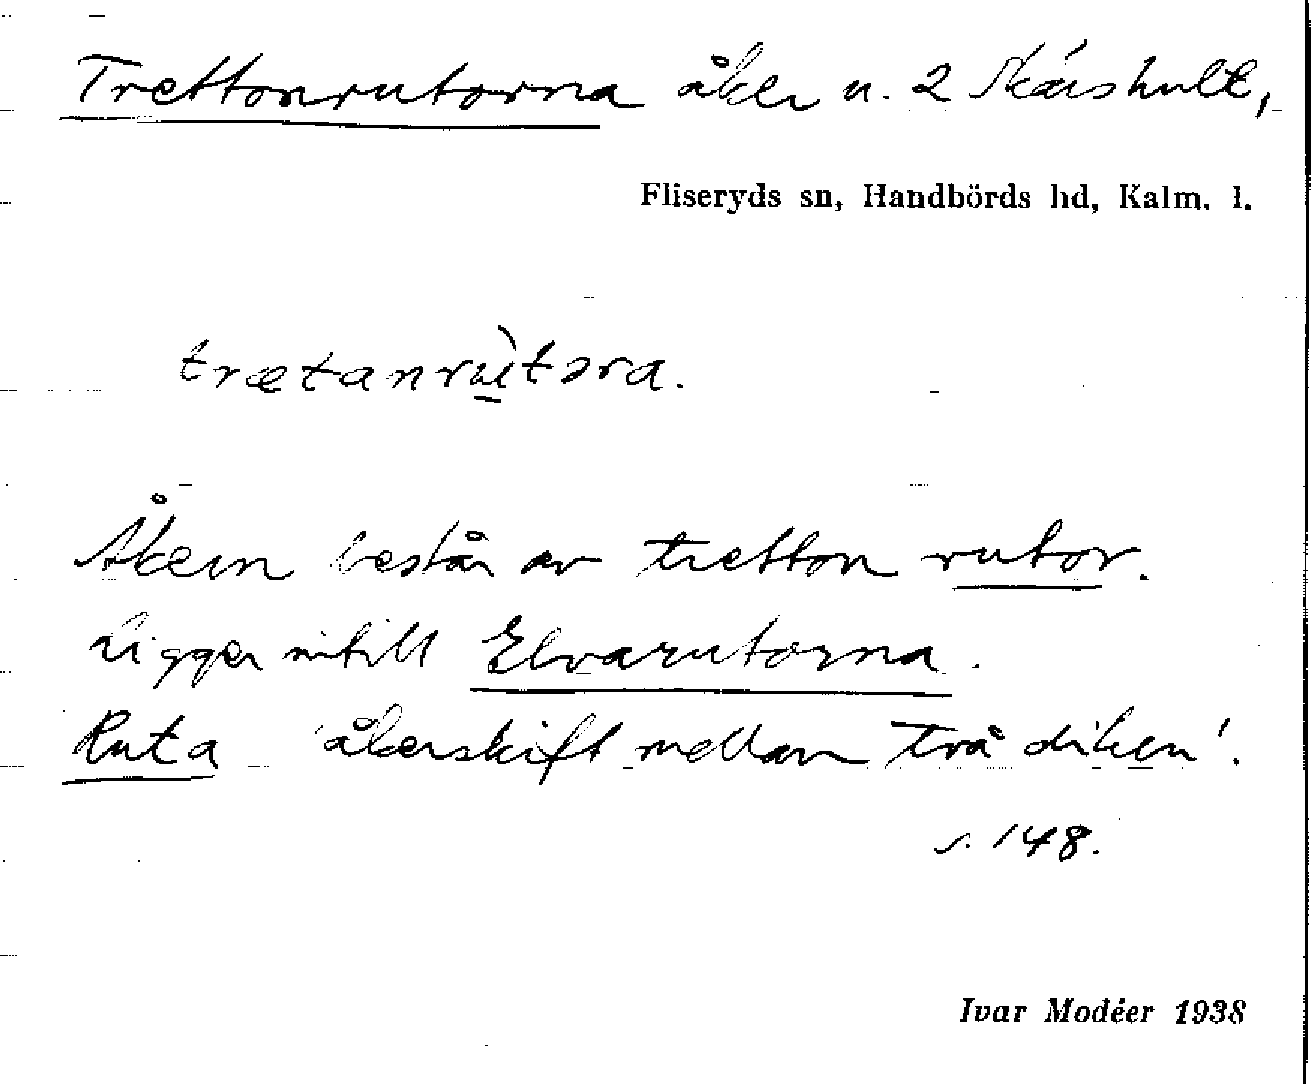 Trettonrutorna åker n. 2 Skårshult,
Fliseryds sn, Handbörds hd, Kalm. l.
trætanrùtora.
Åkern består av tretton rutor.
Ligger intill Elvarutorna.
Ruta 'åkerskift mellan två diken'.
s. 148.
Ivar Modéer 1938